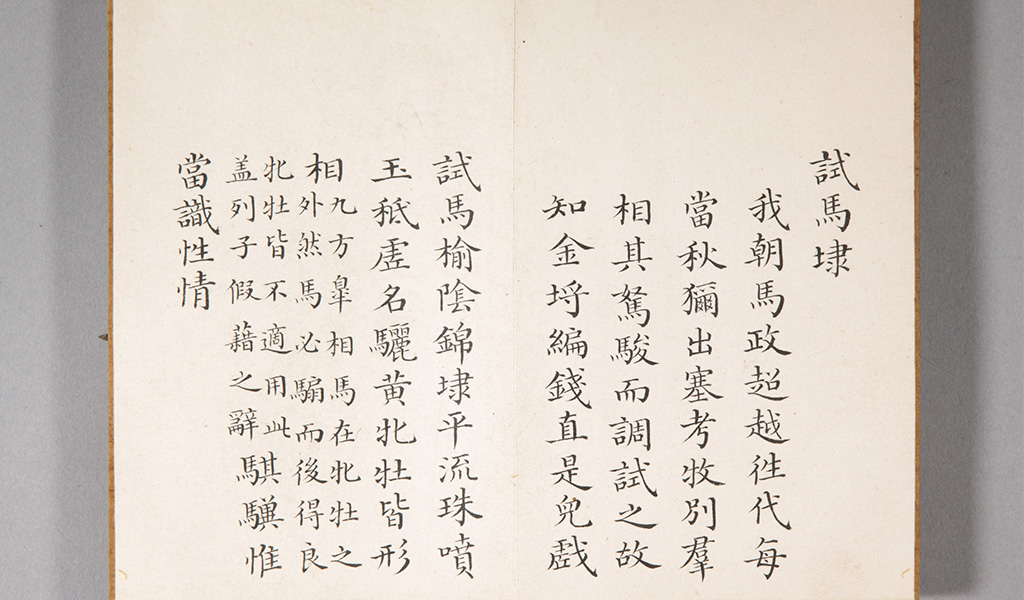 試馬埭
我朝馬政超越徃代每
當秋獮出塞考牧別羣
相其駑駿而調試之故
知金埒編錢直是兒戲
試馬榆隂錦埭平流珠噴
玉秖虛名驪黃牝牡皆形
相九方臯相馬在牝牡之
外然馬必騸而後得良
牝牡皆不適用此
盖列子假藉之辭騏驥惟
當識性情